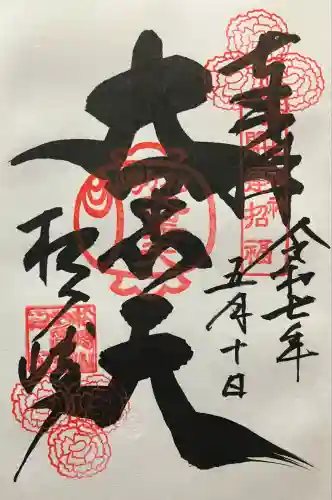 奉拝
令和七年
五月十日
開運招福
大黒天
松ヶ崎